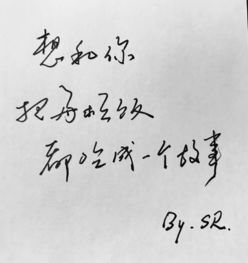 想和你
把每顿饭
都吃成一个故事
By. SR.